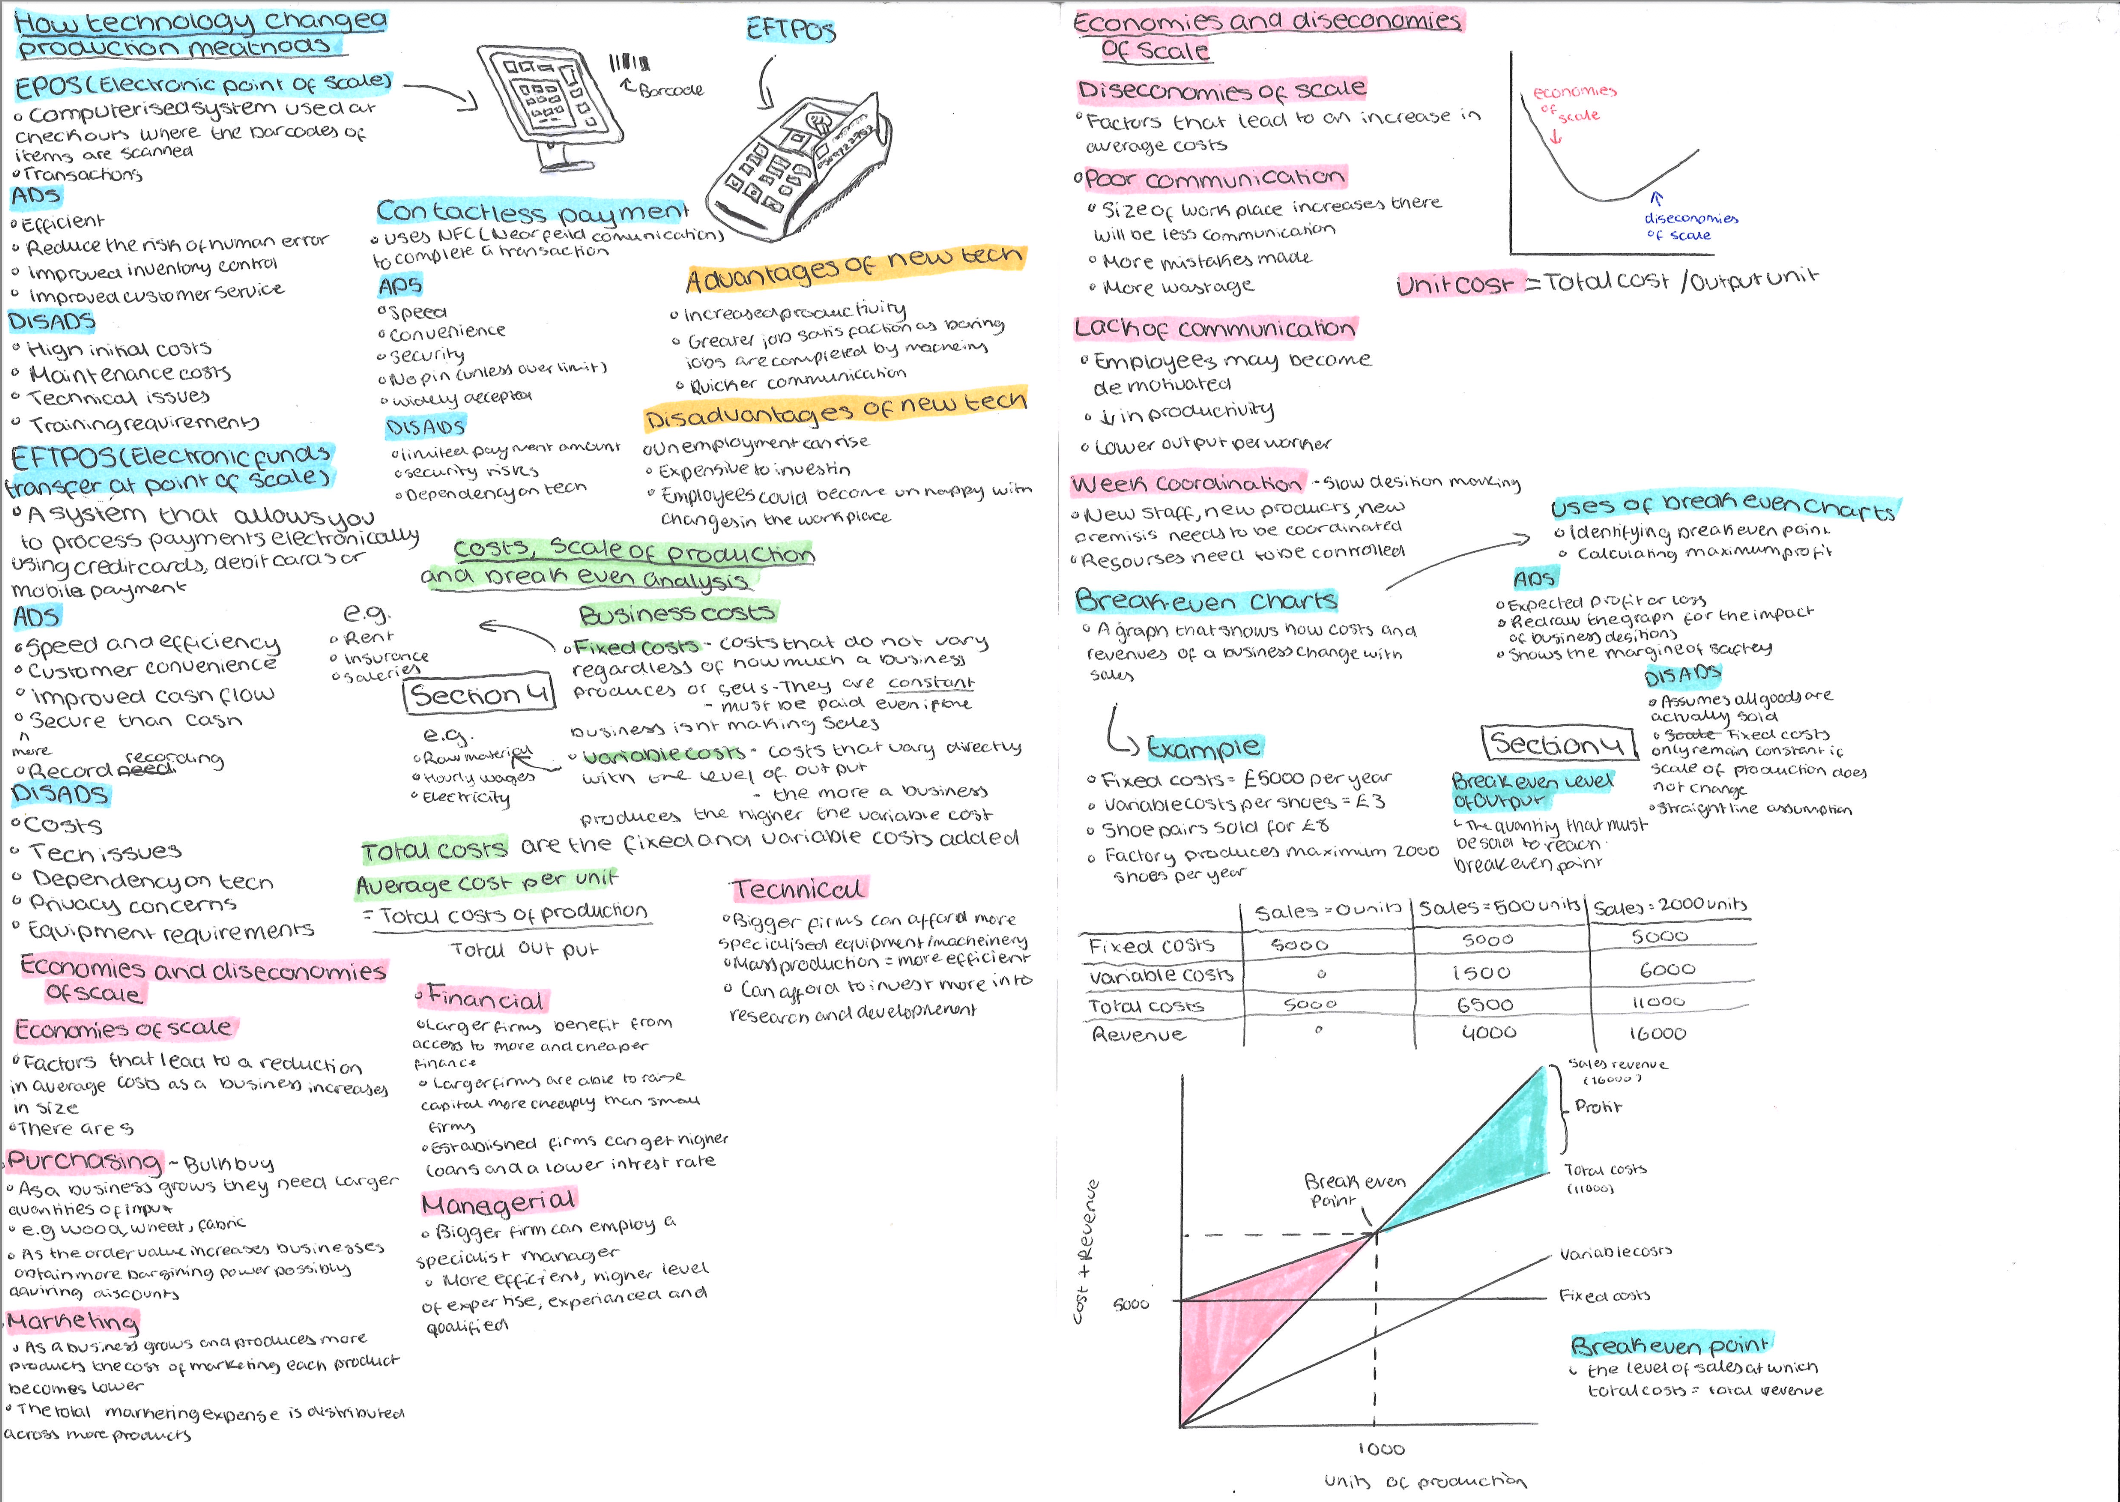 How technology changed
production meathods
EPOS (Electronic point of scale)
Computerised system used at
checkouts where the barcodes of
items are scanned
Transactions
ADS
Efficient
Reduce the risk of human error
improved inventory control
improved customer service
DISADS
High initial costs
Maintenance costs
Technical issues
Training requirements
EFTPOS (Electronic funds
transfer at point of scale)
A system that allows you
to process payments electronically
using credit cards, debit cards or
mobile payment
ADS
Speed and efficiency
Customer convenience
improved cash flow
Secure than cash
^
more
recording
Record need
DISADS
Costs
Tech issues
Dependency on tech
Privacy concerns
Equipment requirements
Barcode
EFTPOS
Contactless payment
uses NFC (Near feild comunication)
to complete a transaction
ADS
Speed
Convenience
Security
No pin (unless over limit)
widely accepted
DISADS
limited payment amount
security risks
Dependency on tech
Advantages of new tech
Increased productivity
Greater job satisfaction as boring
jobs are completed by macheins
Quicker communication
Disadvantages of new tech
unemployment can rise
Expensive to invest in
Employees could become unhappy with
changes in the workplace
Costs, Scale of production
and break even analysis
Business costs
Fixed costs - costs that do not vary
regardless of how much a business
produces or sells - They are constant
- must be paid even if the
business isnt making sales
e.g.
Rent
insurance
saleries
Section 4
Variable costs - costs that vary directly
with the level of output
- the more a business
produces the higher the variable cost
e.g.
Raw material
Hourly wages
Electricity
Total costs are the fixed and variable costs added
Average cost per unit
= Total costs of production
Total output
Economies and diseconomies
of scale
Economies of scale
Factors that lead to a reduction
in average costs as a business increases
in size
There are 5
Purchasing - Bulk buy
As a business grows they need larger
quantities of input
e.g wood, wheat, fabric
As the order value increases businesses
obtain more bargining power possibly
aquiring discounts
Marketing
As a business grows and produces more
products the cost of marketing each product
becomes lower
The total marketing expense is distributed
across more products
Financial
Larger firms benefit from
access to more and cheaper
finance
Larger firms are able to raise
capital more cheaply than small
firms
Established firms can get higher
loans and a lower intrest rate
Managerial
Bigger firm can employ a
specialist manager
More efficient, higher level
of expertise, experianced and
qualified
Technical
Bigger firms can afford more
specialised equipment/macheinery
Mass production = more efficient
Can afford to invest more into
research and development
Economies and diseconomies
of scale
Diseconomies of scale
Factors that lead to an increase in
average costs
Poor communication
Size of work place increases there
will be less communication
More mistakes made
More wastage
economies
of
scale
diseconomies
of scale
Unit cost = Total cost / Output unit
Lack of communication
Employees may become
demotivated
↓ in productivity
Lower output per worker
Week coordination - slow desition making
New staff, new products, new
premisis needs to be coordinated
Resourses need to be controlled
Break even charts
A graph that shows how costs and
revenues of a business change with
sales
Uses of break even charts
Identifying break even point
Calculating maximum profit
ADS
Expected profit or loss
Redraw the graph for the impact
of business desitions
Shows the margine of saftey
DISADS
Assumes all goods are
actually sold
Fixed costs
only remain constant if
scale of production does
not change
Straight line assumption
Example
Fixed costs = £5000 per year
Variable costs per shoes = £3
Shoe pairs sold for £8
Factory produces maximum 2000
shoes per year
Section 4
Break even level
of output
The quantity that must
be sold to reach
break even point
Sales = 0 units | Sales = 500 units | Sales = 2000 units
Fixed costs 5000 5000 5000
Variable costs 0 1500 6000
Total costs 5000 6500 11000
Revenue 0 4000 16000
Sales revenue
(16000)
Profit
Total costs
(11000)
Break even
point
Variable costs
Fixed costs
5000
Cost + Revenue
1000
units of production
Break even point
the level of sales at which
total costs = total revenue